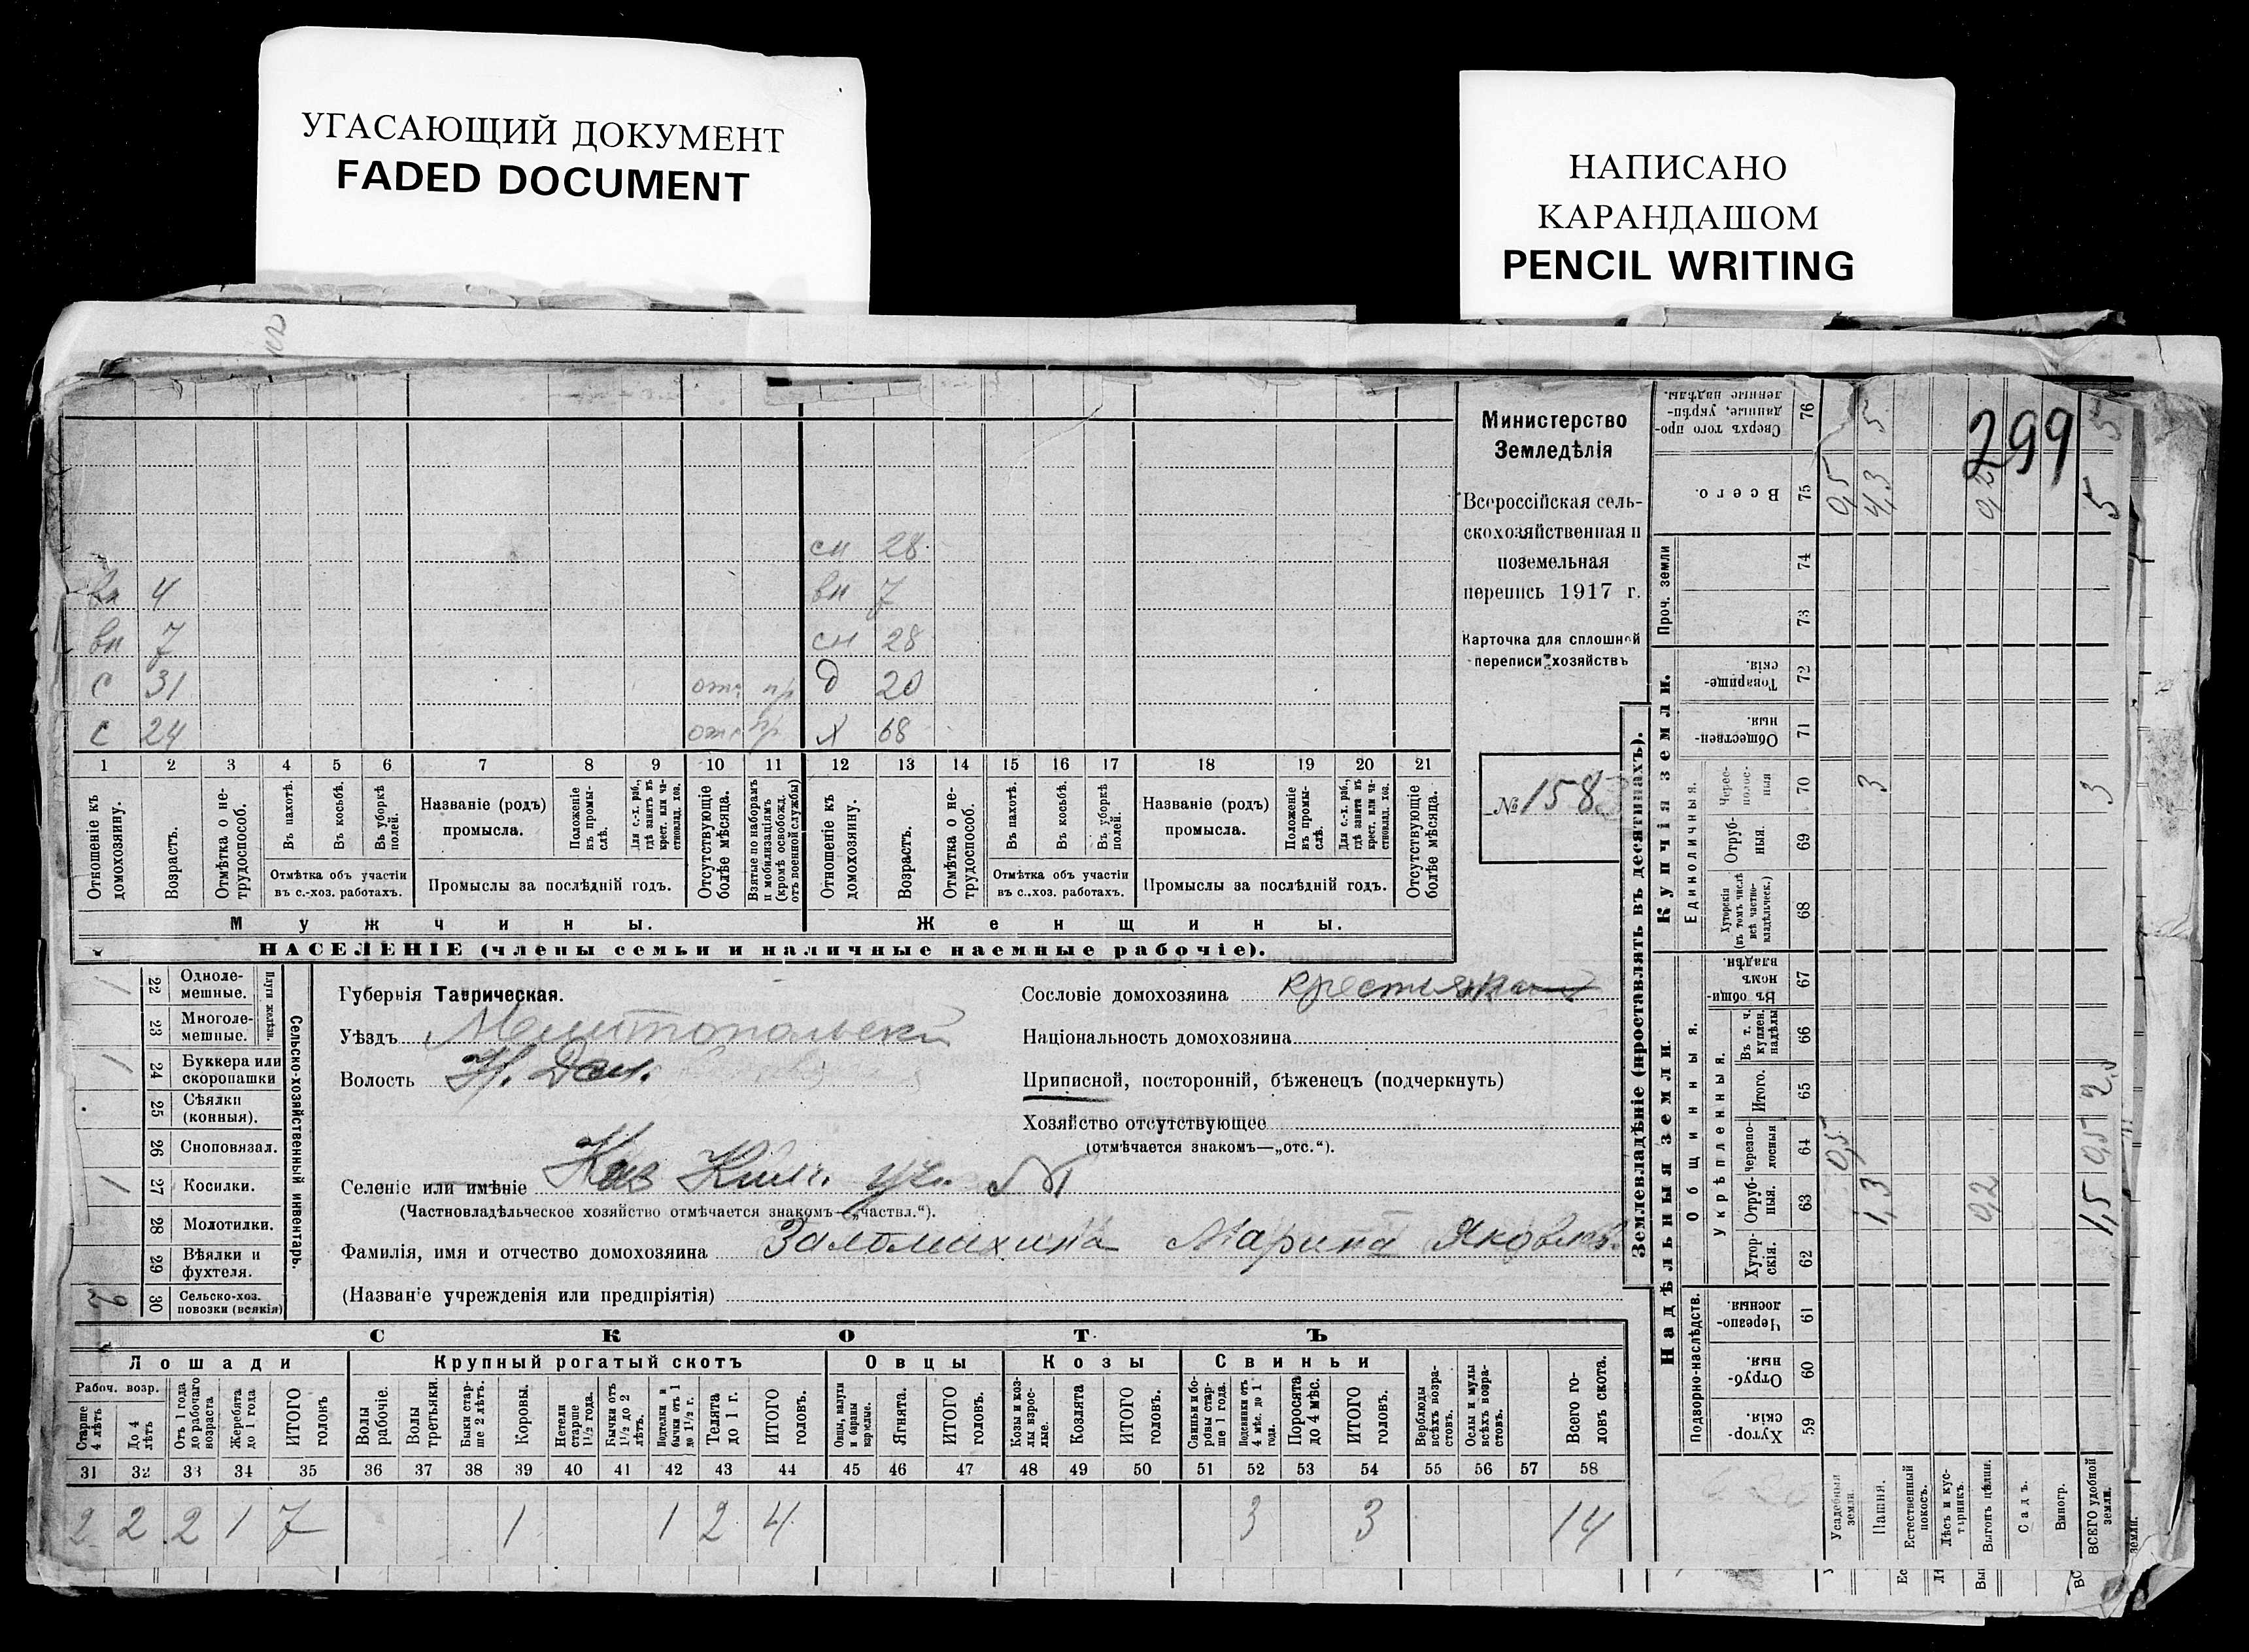 УГАСАЮЩИЙ ДОКУМЕНТ
FADED DOCUMENT
НАПИСАНО
КАРАНДАШОМ
PENCIL WRITING
299
Министерство
Земледѣлія
Всероссійская сель-
скохозяйственная и
поземельная
перепись 1917 г.
Карточка для сплошной
переписи хозяйствъ
№ 1583
сн 28
вн 4 вн 7
вн 7 сн 28
с 31 отс пр д 20
с 24 отс пр х 68
1 2 3 4 5 6 7 8 9 10 11 12 13 14 15 16 17 18 19 20 21
Отношеніе къ домохозяину.
Возрастъ.
Отмѣтка о не-трудоспособ.
Въ пахотѣ.
Въ косьбѣ.
Въ уборкѣ полей.
Отмѣтка объ участіи
въ с.-хоз. работахъ.
Названіе (родъ)
промысла.
Положеніе въ промы-слѣ.
Для с.-х. раб., гдѣ занятъ въ крест. или ча-стновлад. хоз.
Промыслы за послѣдній годъ.
Отсутствующіе болѣе мѣсяца.
Взятые по наборамъ и мобилизаціямъ (кромѣ освобожд. отъ военной службы)
Отношеніе къ домохозяину.
Возрастъ.
Отмѣтка о не-трудоспособ.
Въ пахотѣ.
Въ косьбѣ.
Въ уборкѣ полей.
Отмѣтка объ участіи
въ с.-хоз. работахъ.
Названіе (родъ)
промысла.
Положеніе въ промы-слѣ.
Для с.-х. раб., гдѣ занята въ крест. или ча-стновлад. хоз.
Промыслы за послѣдній годъ.
Отсутствующіе болѣе мѣсяца.
Мужчины.
Женщины.
НАСЕЛЕНІЕ (члены семьи и наличные наемные рабочіе).
Сельско-хозяйственный инвентарь.
Плуги желѣзн.
1 22 Одноле-мешные.
23 Многоле-мешные.
1 24 Буккера или скоропашки
25 Сѣялки (конныя).
26 Сноповязал.
1 27 Косилки.
28 Молотилки.
29 Вѣялки и фухтеля.
30 Сельско-хоз. повозки (всякія)
Губернія Таврическая.
Уѣздъ Мелитопольскій
Волость Н. Дан.
Сословіе домохозяина крестьян
Національность домохозяина
Приписной, посторонній, бѣженецъ (подчеркнуть)
Хозяйство отсутствующее
(отмѣчается знакомъ—„отс.“).
Селеніе или имѣніе
(Частновладѣльческое хозяйство отмѣчается знакомъ—„частвл.“).
Фамилія, имя и отчество домохозяина Заломихина Марина Яковл.
(Названіе учрежденія или предпріятія)
СКОТЪ
Лошади
Крупный рогатый скотъ
Овцы
Козы
Свиньи
Рабоч. возр.
Старше 4 лѣтъ
До 4 лѣтъ
Отъ 1 года до рабочаго возраста
Жеребята до 1 года
ИТОГО головъ
Волы рабочіе.
Волы третьяки.
Быки стар-ше 2 лѣтъ.
Коровы.
Нетели старше 1½ года.
Бычки отъ 1½ до 2 лѣтъ.
Подтелки и бычки отъ 1 до 1½ г.
Телята до 1 г.
ИТОГО головъ.
Овцы, валухи и бараны взрослые.
Ягнята.
ИТОГО головъ.
Козы и коз-лы взрос-лые.
Козлята
ИТОГО головъ.
Свиньи и бо-ровы стар-ше 1 года.
Подсвинки отъ 4 мѣс. до 1 года.
Поросята до 4 мѣс.
ИТОГО головъ.
Верблюды всѣхъ возра-стовъ.
Ослы и мулы всѣхъ возра-стовъ.
Всего го-ловъ скота.
31 32 33 34 35 36 37 38 39 40 41 42 43 44 45 46 47 48 49 50 51 52 53 54 55 56 57 58
2 2 2 1 7 1 1 2 4 3 3 14
Землевладѣніе (проставлять въ десятинахъ).
Надѣльныя земли.
Купчія земли.
Проч. земли
Подворно-наслѣдств.
Общинныя.
Укрѣпленныя.
Единоличныя.
Сверхъ того про-данные, укрѣп-ленные надѣлы. 76 5 5
Всего. 75 0,5 4,3 0,2 5
74
73
Товарище-скія. 72
Обществен-ныя. 71
Черес-полос-ныя 70 3 3
Отруб-ныя. 69
Хуторскія (въ томъ числѣ всѣ частно-владѣльческ.) 68
Въ общин-номъ владѣн. 67
Въ т. ч. куплен. надѣлы 66
Итого. 65
Черезпо-лосныя 64 0,5 0,5
Отруб-ныя. 63 1,3 0,2 1,5
Хутор-скія. 62
Черезпо-лосныя 61
Отруб-ныя. 60
Хутор-скія. 59
Усадебныя земли.
Пашня.
Естественный покосъ.
Лѣсъ и кус-тарникъ.
Выгонъ цѣлин.
Садъ.
Виногр.
ВСЕГО удобной земли.